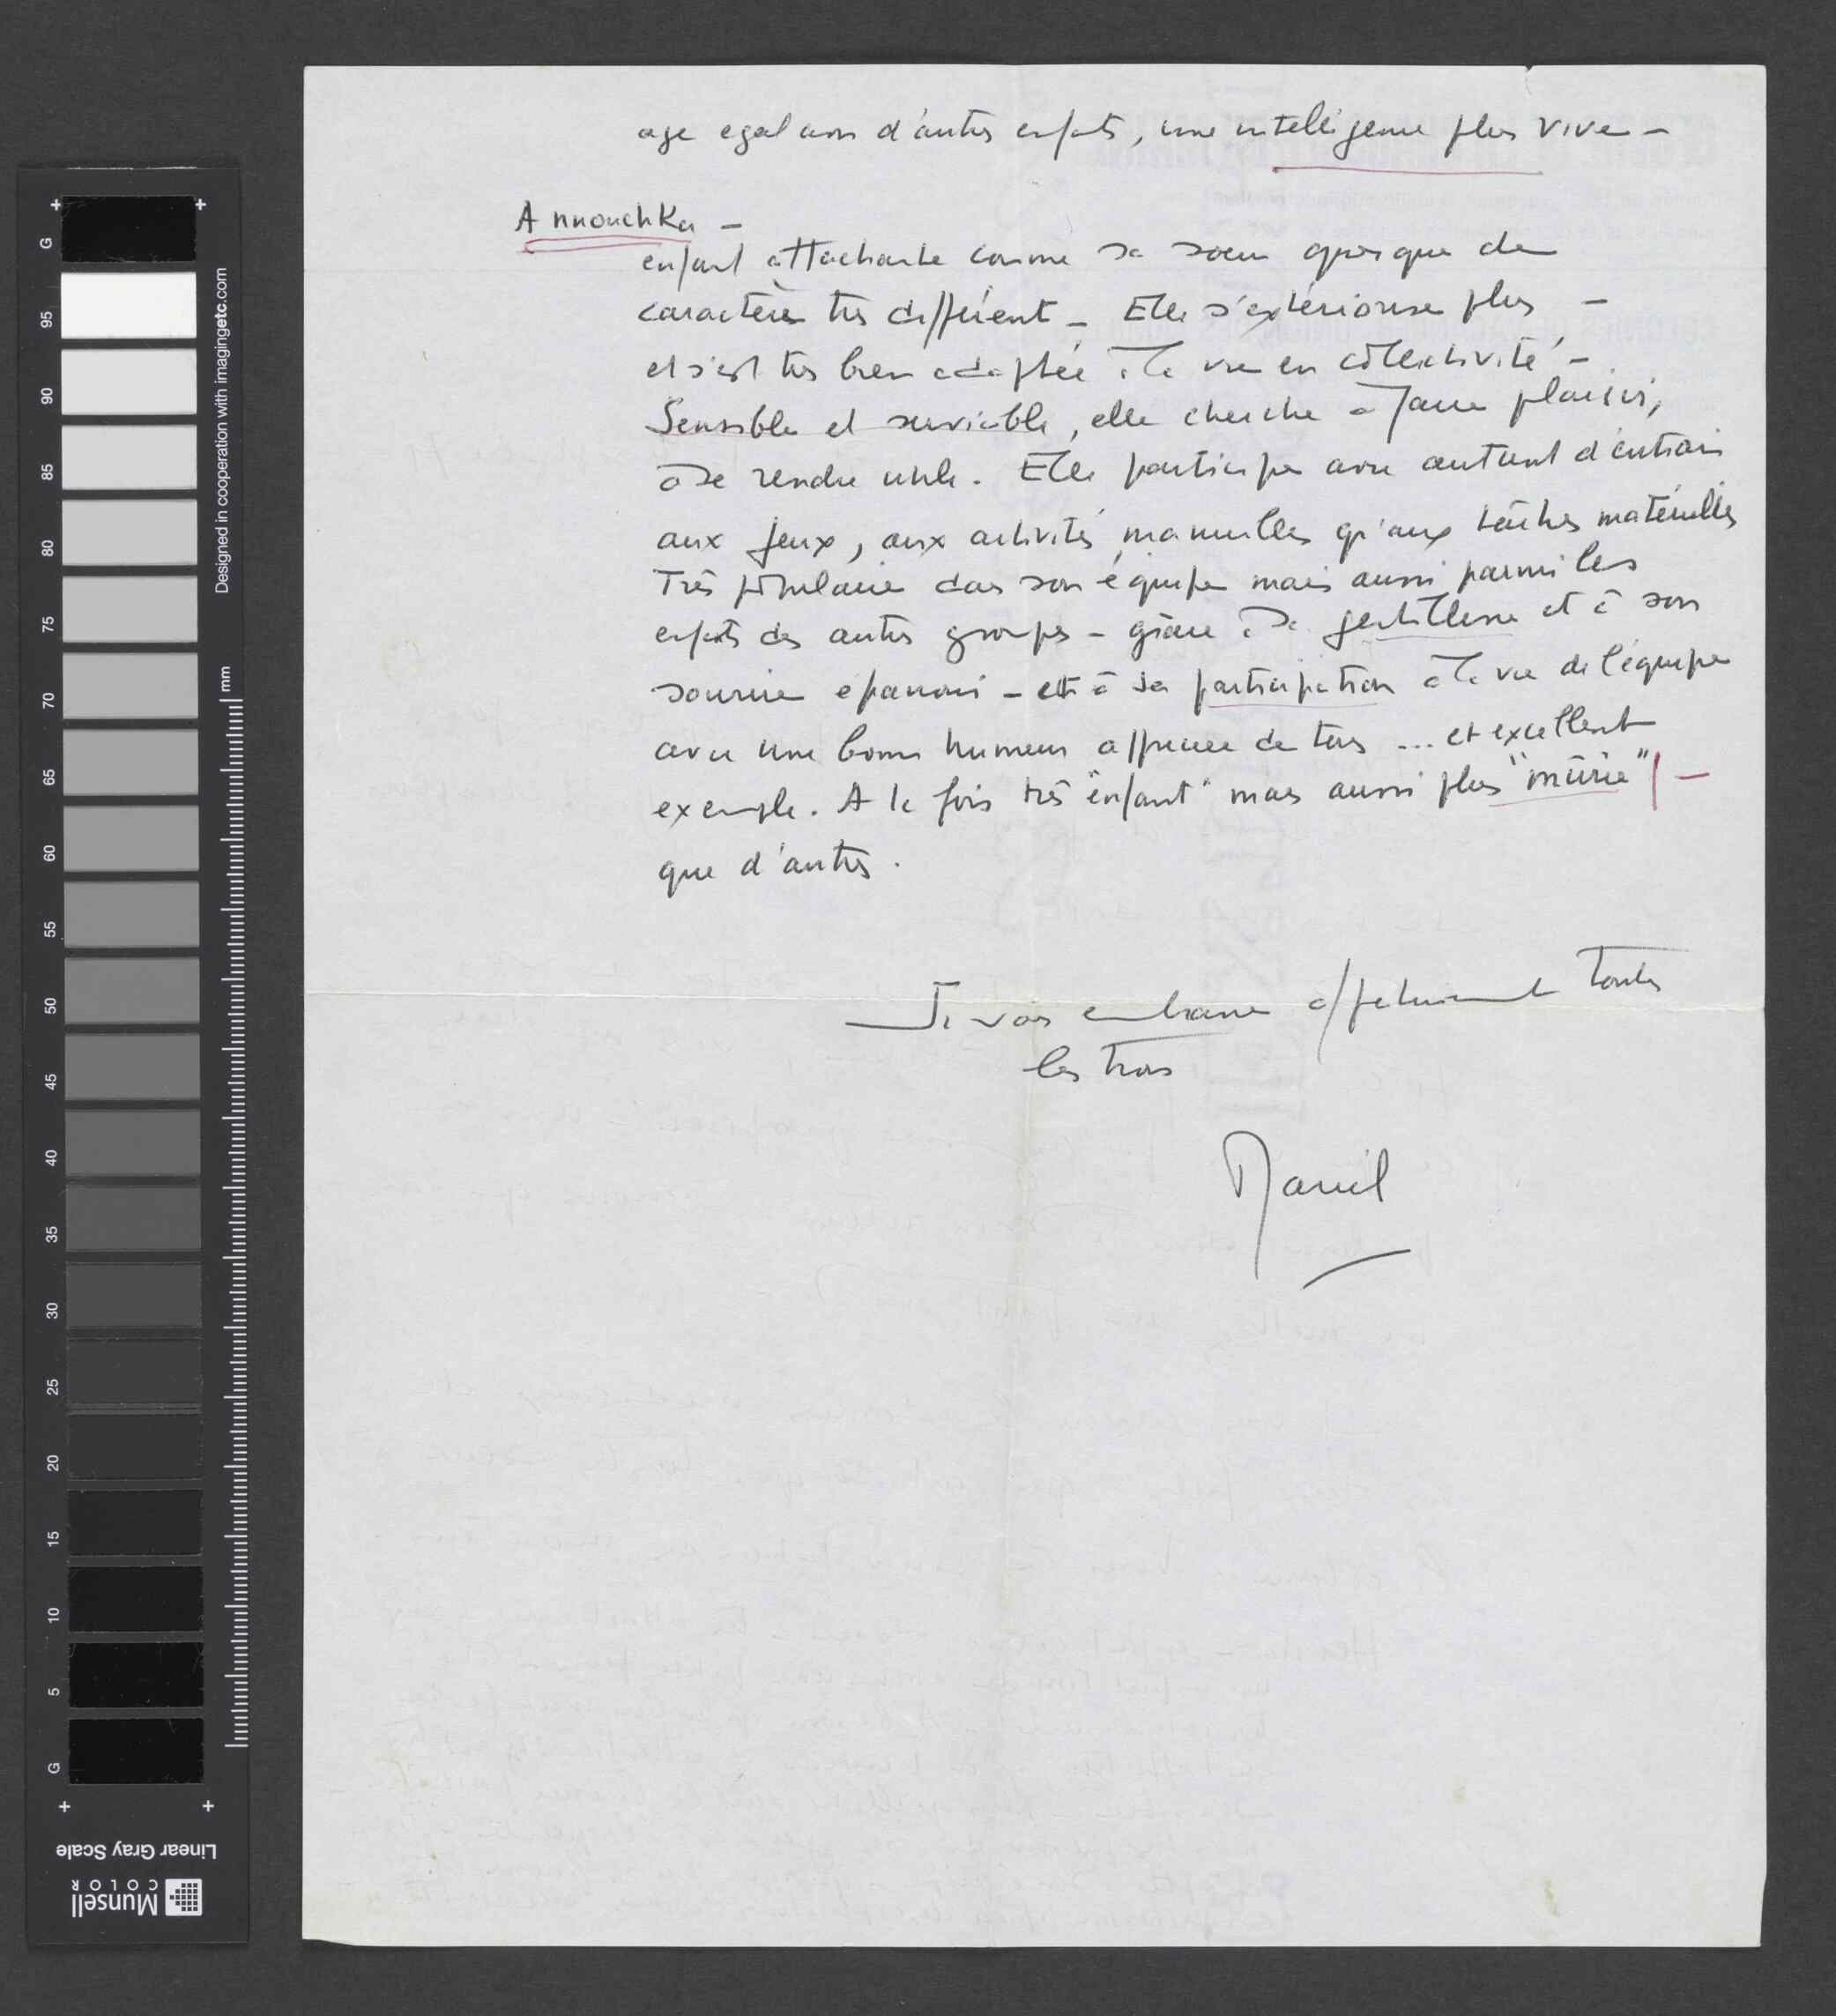 age egal avec d'autres enfants, une intelligence plus vive -
Annouchka -
enfant attachante comme sa soeur quoique de
caractère très différent - Elle s'extériorise plus -
et s'est très bien adaptée à la vie en collectivité -
Sensible et serviable, elle cherche à faire plaisir,
à se rendre utile. Elle participe avec autant d'entrain
aux jeux, aux activités manuelles qu'aux tâches matérielles
Très populaire dans son équipe mais aussi parmi les
enfants des autres groupes - grâce à sa gentillesse et à son
sourire épanoui - et à sa participation à la vie de l'équipe
avec une bonne humeur appréciée de tous ... et excellent
exemple. A la fois très "enfant" mais aussi plus "mûrie" -
que d'autres.
Je vous embrasse affectueusement toutes
les trois
G
95
90
85
80
75
70
65
60
55
50
45
40
35
30
25
20
15
10
5
G
mm
Designed in cooperation with imagingetc.com
Linear Gray Scale
Munsell
COLOR